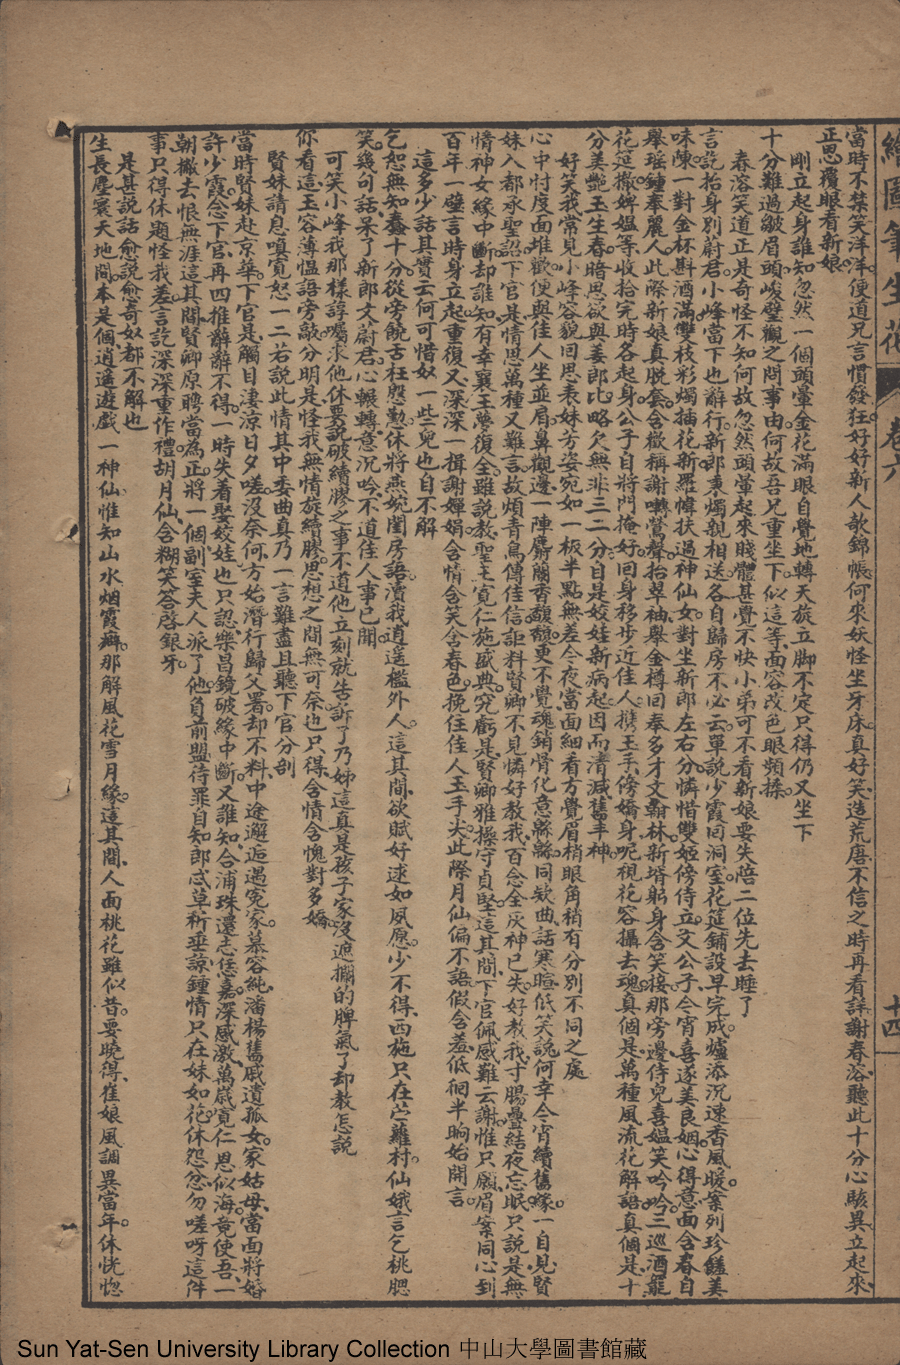 繪圖筆生花
卷六
十四
當時不禁笑洋洋。便道兄言慣發狂。好好新人歌錦帳何來妖怪坐牙床。真好笑造荒唐。不信之時再看詳謝春溶聽此十分心駭異立起來
正思覆眼看新娘
剛立起身誰知忽然一個頭暈金花滿眼自覺地轉天旋立脚不定只得仍又坐下
十分難過皺眉頭峻璧觀之問事由何故吾兄重坐下似這等面容改色眼頻揉。
春溶笑道正是奇怪不知何故忽然頭暈起來賤體甚覺不快小弟可不看新娘要失陪二位先去睡了
言訖抬身別蔚君。小峰當下也辭行。新郎東燭親相送各自歸房不必云單說少霞回洞室花筵鋪設早完成。爐添沉速香風暖案列珍饈美
味陳一對金杯斟酒滿雙枝彩燭插花新羅幃扶過神仙女對坐新郎左右分憐惜雙姬傍侍立文公子今宵喜遂美良姻心得意面含春自
舉瑤鍾奉麗人此際新娘真脫套含撤稱謝囀鶯聲抬翠袖舉金樽回奉多才文翰林新壻躬身含笑接那旁邊侍兒喜媼笑吟吟三巡酒罷
花筵撤婢媼等收拾完時各起身公子自將門掩好回身移步近佳人攜玉手傍嬌身呢視花容攝去魂真個是萬種風流花解語真個是十
分美艷玉生春暗思欲與姜郎比略欠無非三二分自是姣娃新病起因而清減舊丰神
好笑我常見小峰容貌回思表妹芳姿宛如一板半點無差今夜當面細看方覺眉梢眼角稍有分別不同之處
心中忖度面堆歡便與佳人坐並肩鼻觀邊一陣麝蘭香馥馥更不覺魂銷情化意緜緜同欸曲話寒暄低笑說何幸今宵續舊緣一自見賢
妹入都承聖詔下官是情思萬種又難言故煩青鳥傳佳信詎料賢卿不見憐好教我百念全灰神已失好教我寸腸疊結夜忘眠只說是無
情神女緣中斷却誰知有幸襄王夢復全雖說教聖主寬仁施盛典究虧是賢卿雅操守貞堅這其間下官佩感難云謝惟只願眉案同心到
百年一璧言時身立起重復又深深一揖謝嬋娟含情含笑含春色挽住佳人玉手尖此際月仙偏不語假含羞低徊半晌始開言
這多少話其實云何可惜奴一些兒也自不解
乞恕無知蠢十分從旁饒舌枉慇懃休將燕婉閨房語瀆我逍遥檻外人。這其間欲賦好逑如夙愿少不得西施只在苎蘿村仙娥言乞桃腮
笑幾句話呆了新郎文蔚君心輾轉意沉吟不道佳人事已聞
可笑小峰我那樣諄囑求他休要說破續膠之事不道他立刻就告訴了乃姊這真是孩子家沒遮攔的脾氣了却教怎說
你看這玉容薄愠語旁敲分明是怪我無情旋續膠。思想之間無可奈也只得含情含愧對多嬌。
賢妹請息嗔寬怒一二若說此情其中委曲真乃一言難盡且聽下官分剖
當時賢妹赴京華下官是觸目淒涼日夕嗟没奈何方始潛行歸父署却不料中途邂逅遇冤家慕容純潘楊舊戚遺孤女家姑母當面將婚
許少霞念下官再四推辭辭不得一時失着娶姣娃也只認樂昌鏡破緣中斷又誰知合浦珠還志恁嘉深感激萬歲寬仁恩似海竟使吾一
朝撇去恨無涯這其間賢卿原聘當為正將一個副室夫人派了他負前盟待罪自知郎忒草祈垂諒鍾情只在妹如花休怨忿勿嗟呀這件
事只得休題怪我差言訖深深重作禮胡月仙含糊笑答啓銀牙
是甚說話愈說愈奇奴都不解也
生長塵寰天地間本是個逍遥遊戲一神仙惟知山水烟霞癖那解風花雪月緣這其間人面桃花雖似昔要曉得崔娘風調異當年休恍惚
Sun Yat-Sen University Library Collection 中山大學圖書館藏